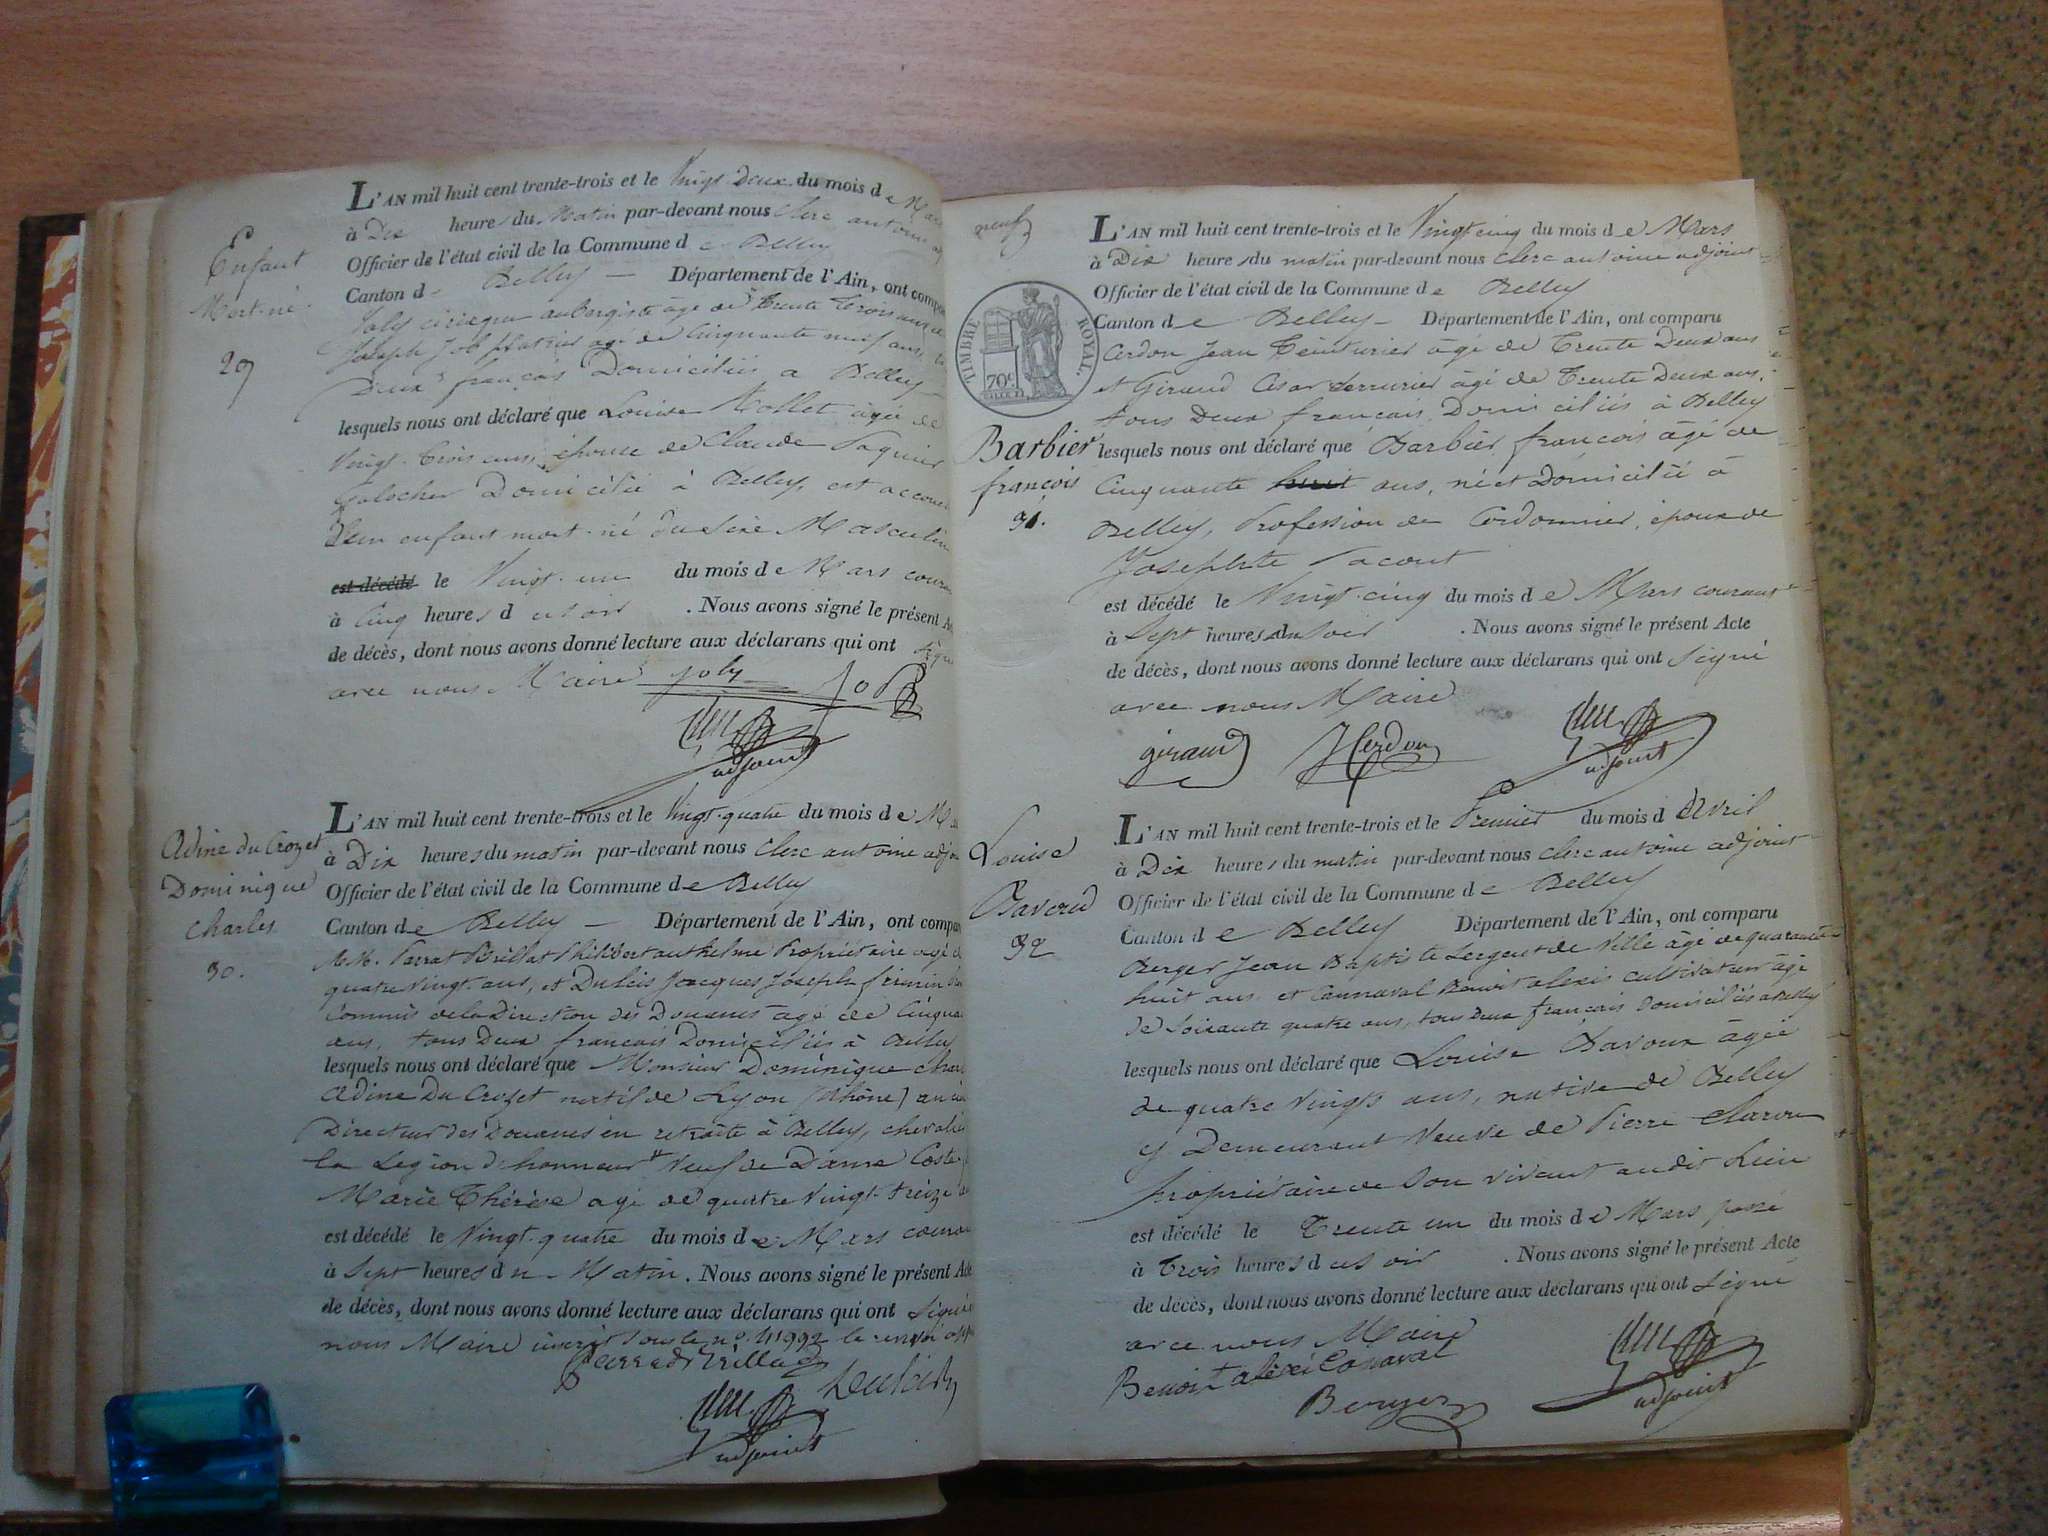 Enfant
Mort-né
29
L'AN mil huit cent trente-trois et le Vingt Deux du mois de Mars
à Dix heures du Matin par-devant nous Clerc antoine
Officier de l'état civil de la Commune de Belley
Canton de Belley — Département de l'Ain, ont comparu
Joly aubergiste âgé de Trente Trois ans
Joseph Job platrier âgé de Cinquante neuf ans
Deux français Domiciliés a Belley
lesquels nous ont déclaré que Louise Mollet âgée de
Vingt-Trois ans, épouse de Claude
Galocher Domiciliée à Belley, est accouchée
d'un enfant mort-né du sexe Masculin
est décédé le Vingt-un du mois de Mars courant
à Cinq heures du soir . Nous avons signé le présent Acte
de décès, dont nous avons donné lecture aux déclarans qui ont signé
avec nous Maire Joly Job
adjoint
Adine du Crozet
Dominique
Charles
30.
L'AN mil huit cent trente-trois et le Vingt-quatre du mois de Mars
à Dix heures du matin par-devant nous Clerc antoine adjoint
Officier de l'état civil de la Commune de Belley
Canton de Belley — Département de l'Ain, ont comparu
M.M. Parrat Brillat Philibert anthelme Propriétaire âgé de
quatre vingt ans, et Dulcis Jacques Joseph firmin
Commis de la Direction des Douanes âgé de Cinquante
ans, tous Deux français Domiciliés à Belley
lesquels nous ont déclaré que Monsieur Dominique Charles
Adine Du Crozet natif de Lyon (Rhône) ancien
Directeur des Douanes en retraite à Belley, chevalier
la Legion d'honneur Veuf de Dame Coste
Marie Thérèse agé de quatre Vingt-treize ans
est décédé le Vingt-quatre du mois de Mars courant
à Sept heures du Matin. Nous avons signé le présent Acte
de décès, dont nous avons donné lecture aux déclarans qui ont signé
nous Maire inscrit sous le n° 41992 le renvoi
Parrat Brillat
Dulcis
adjoint
neuf
TIMBRE ROYAL.
70c
Barbier
françois
31.
L'AN mil huit cent trente-trois et le Vingt cinq du mois de Mars
à Dix heures du matin par-devant nous Clerc antoine adjoint
Officier de l'état civil de la Commune de Belley
Canton de Belley — Département de l'Ain, ont comparu
Cerdon Jean Teinturier âgé de Trente Deux ans
et Giraud César Serrurier âgé de Trente Deux ans,
tous Deux français, Domiciliés à Belley
lesquels nous ont déclaré que Barbier françois âgé de
Cinquante huit ans, né et Domicilié à
Belley, Profession de Cordonnier, époux de
Josephte Pacout
est décédé le Vingt-cinq du mois de Mars courant
à Sept heures du Soir . Nous avons signé le présent Acte
de décès, dont nous avons donné lecture aux déclarans qui ont signé
avec nous Maire
giraud J Cerdon
adjoint
Louise
Baveux
32
L'AN mil huit cent trente-trois et le Premier du mois d'Avril
à Dix heures du matin par-devant nous Clerc antoine adjoint
Officier de l'état civil de la Commune de Belley
Canton de Belley Département de l'Ain, ont comparu
Berger Jean Baptiste Sergent de Ville âgé de quarante
huit ans et Cannaval Benoit alexis cultivateur âgé
de Soixante quatre ans, tous Deux français Domiciliés à Belley
lesquels nous ont déclaré que Louise Baveux âgée
de quatre Vingts ans, native de Belley
y Demeurant Veuve de Pierre Charon
propriétaire de Son vivant audit Lieu
est décédé le Trente un du mois de Mars passé
à Trois heures du soir . Nous avons signé le présent Acte
de décès, dont nous avons donné lecture aux déclarans qui ont Signé
avec nous Maire
Benoit alexi Conaval
Berger
adjoint